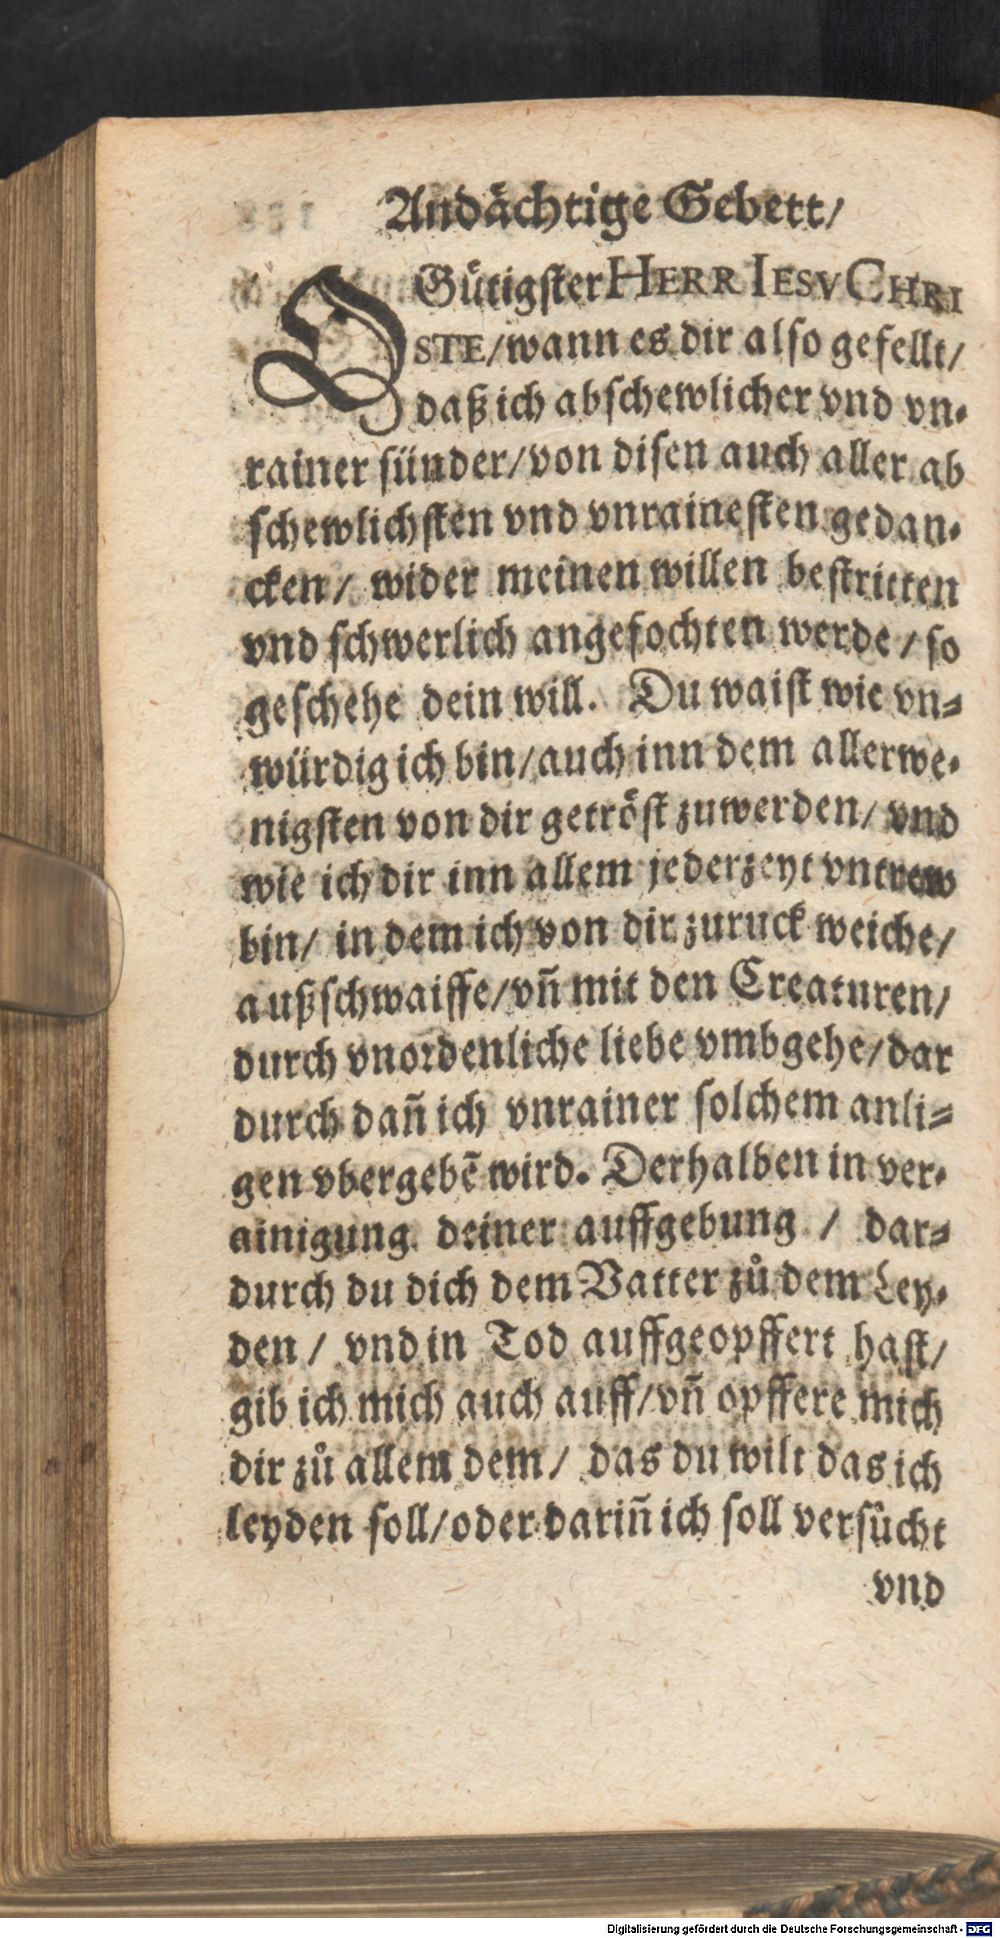 Andächtige Gebett/
O Gütigster HERR IESV CHRI
STE/wann es dir also gefellt/
daß ich abschewlicher vnd vn-
rainer sünder/von disen auch aller ab
schewlichsten vnd vnrainesten gedan-
cken/ wider meinen willen bestritten
vnd schwerlich angefochten werde/so
geschehe dein will. Du waist wie vn-
würdig ich bin/auch inn dem allerwe-
nigsten von dir getröst zuwerden/vnd
wie ich dir inn allem jederzeyt vntrew
bin/ in dem ich von dir zuruck weiche/
außschwaiffe/vñ mit den Creaturen/
durch vnordenliche liebe vmbgehe/dar
durch dañ ich vnrainer solchem anli-
gen vbergebẽ wird. Derhalben in ver-
ainigung deiner auffgebung / dar-
durch du dich dem Vatter zů dem Ley-
den/ vnd in Tod auffgeopffert hast/
gib ich mich auch auff/vñ opffere mich
dir zů allem dem/ das du wilt das ich
leyden soll/oder dariñ ich soll versůcht
vnd
Digitalisierung gefördert durch die Deutsche Forschungsgemeinschaft - DFG